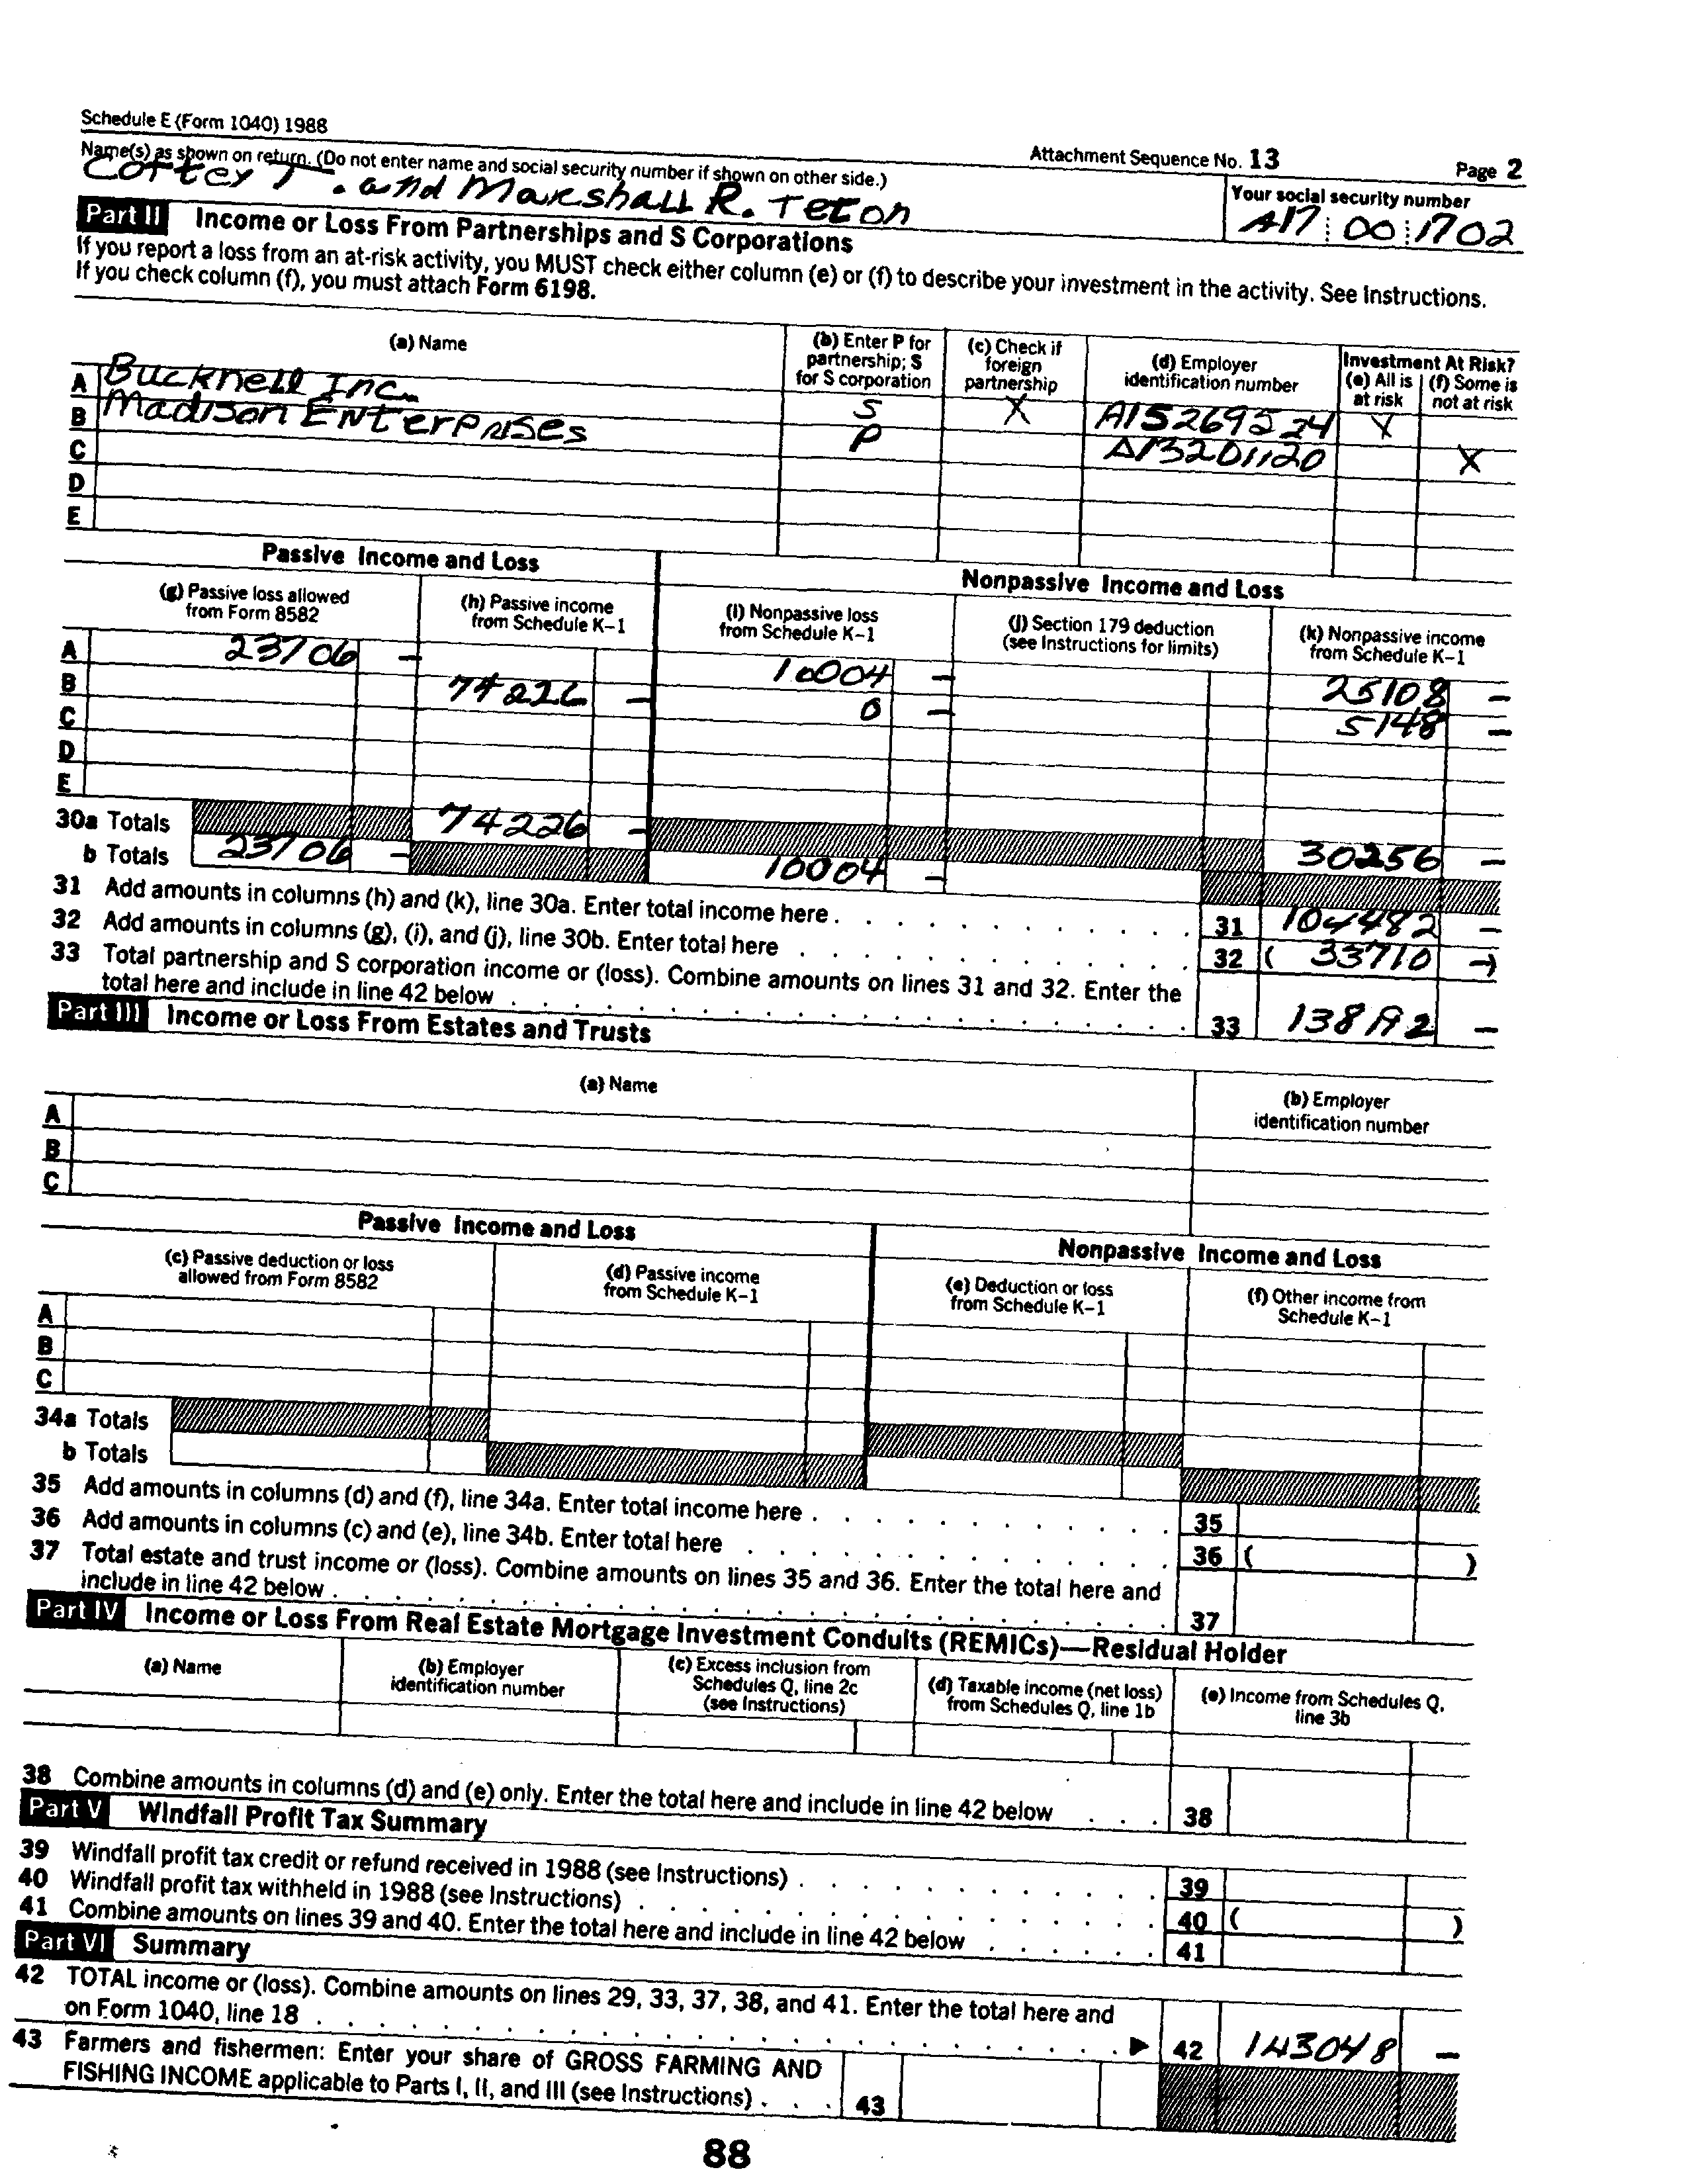 Schedule E (Form 1040) 1988
Attachment Sequence No. 13
Page 2
Name(s) as shown on return. (Do not enter name and social security number if shown on other side.)
Your social security number
T. and Marshall R. Teton
A17 00 1702
Part II Income or Loss From Partnerships and S Corporations
If you report a loss from an at-risk activity, you MUST check either column (e) or (f) to describe your investment in the activity. See Instructions.
If you check column (f), you must attach Form 6198.
(a) Name
(b) Enter P for partnership; S for S corporation
(c) Check if foreign partnership
(d) Employer identification number
Investment At Risk?
(e) All is at risk
(f) Some is not at risk
A Bucknell Inc. S X A15269524 X
B Madison Enterprises P A13201120 X
C
D
E
Passive Income and Loss
Nonpassive Income and Loss
(g) Passive loss allowed from Form 8582
(h) Passive income from Schedule K-1
(i) Nonpassive loss from Schedule K-1
(j) Section 179 deduction (see Instructions for limits)
(k) Nonpassive income from Schedule K-1
A 23706 – 10004 – 25108 –
B 74226 – 0 – 5148 –
C
D
E
30a Totals 74226 – 30256 –
b Totals 23706 – 10004 –
31 Add amounts in columns (h) and (k), line 30a. Enter total income here . 31 104482 –
32 Add amounts in columns (g), (i), and (j), line 30b. Enter total here . 32 ( 33710 –)
33 Total partnership and S corporation income or (loss). Combine amounts on lines 31 and 32. Enter the
total here and include in line 42 below . 33 138192 –
Part III Income or Loss From Estates and Trusts
(a) Name
(b) Employer identification number
A
B
C
Passive Income and Loss
Nonpassive Income and Loss
(c) Passive deduction or loss allowed from Form 8582
(d) Passive income from Schedule K-1
(e) Deduction or loss from Schedule K-1
(f) Other income from Schedule K-1
A
B
C
34a Totals
b Totals
35 Add amounts in columns (d) and (f), line 34a. Enter total income here . 35
36 Add amounts in columns (c) and (e), line 34b. Enter total here . 36 ( )
37 Total estate and trust income or (loss). Combine amounts on lines 35 and 36. Enter the total here and
include in line 42 below . 37
Part IV Income or Loss From Real Estate Mortgage Investment Conduits (REMICs)—Residual Holder
(a) Name
(b) Employer identification number
(c) Excess inclusion from Schedules Q, line 2c (see Instructions)
(d) Taxable income (net loss) from Schedules Q, line 1b
(e) Income from Schedules Q, line 3b
38 Combine amounts in columns (d) and (e) only. Enter the total here and include in line 42 below . . . 38
Part V Windfall Profit Tax Summary
39 Windfall profit tax credit or refund received in 1988 (see Instructions) . 39
40 Windfall profit tax withheld in 1988 (see Instructions) . 40 ( )
41 Combine amounts on lines 39 and 40. Enter the total here and include in line 42 below . 41
Part VI Summary
42 TOTAL income or (loss). Combine amounts on lines 29, 33, 37, 38, and 41. Enter the total here and
on Form 1040, line 18 . ▶ 42 143048 –
43 Farmers and fishermen: Enter your share of GROSS FARMING AND
FISHING INCOME applicable to Parts I, II, and III (see Instructions) . . . 43
88